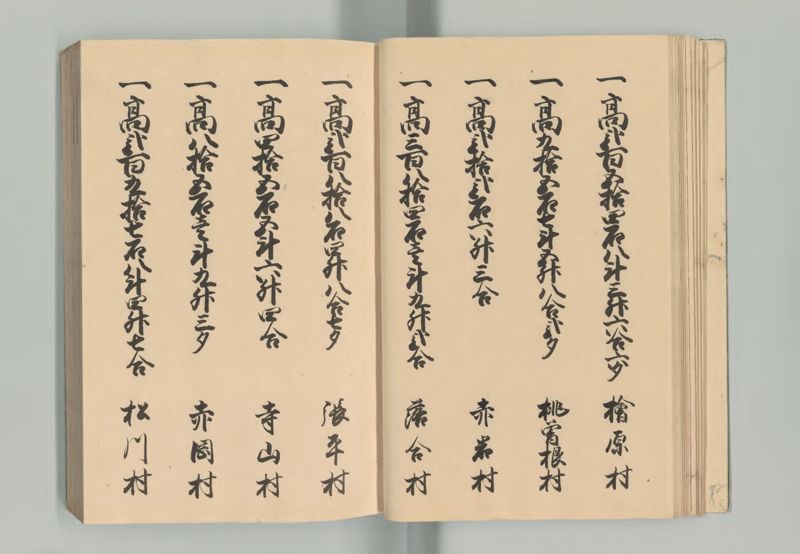 一高弐百五拾四石八斗三升六合六夕 檜原村
一高九拾五石七斗五升八合弐夕 桃曽根村
一高弐拾弐石六升三合 赤岩村
一高三百八拾四石壱斗九升弐合 落合村
一高弐百八拾八石四升八合七夕 張平村
一高四拾五石五斗六升四合 寺山村
一高八拾五石壱斗九升三夕 赤岡村
一高弐百九拾七石八斗四升七合 松川村